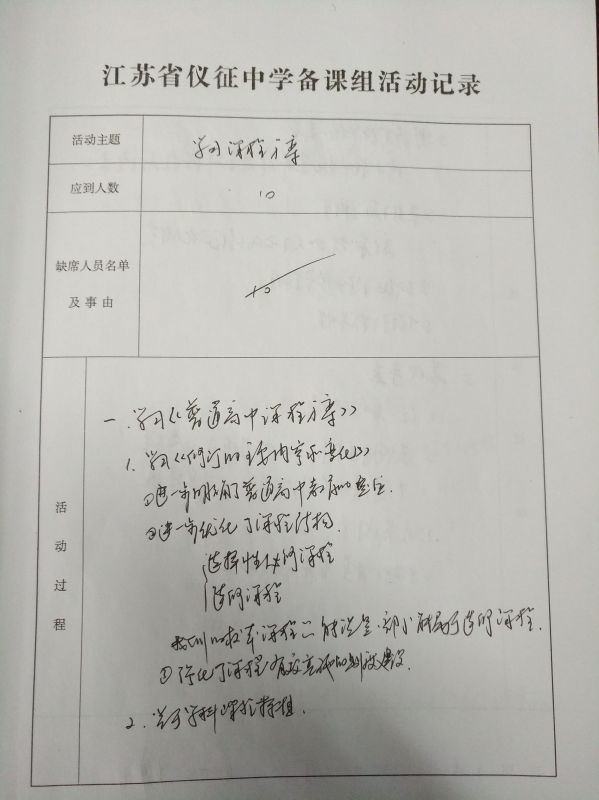 江苏省仪征中学备课组活动记录
活动主题
学习课程方案
应到人数
10
缺席人员名单
及事由
活动过程
一、学习《普通高中课程方案》
1. 学习《修订的主要内容和变化》
①进一步明确了普通高中教育的定位
②进一步优化了课程结构.
选择性必修课程
选修课程
校本课程
选修课程.
③强化了课程有效实施的制度建设
2.